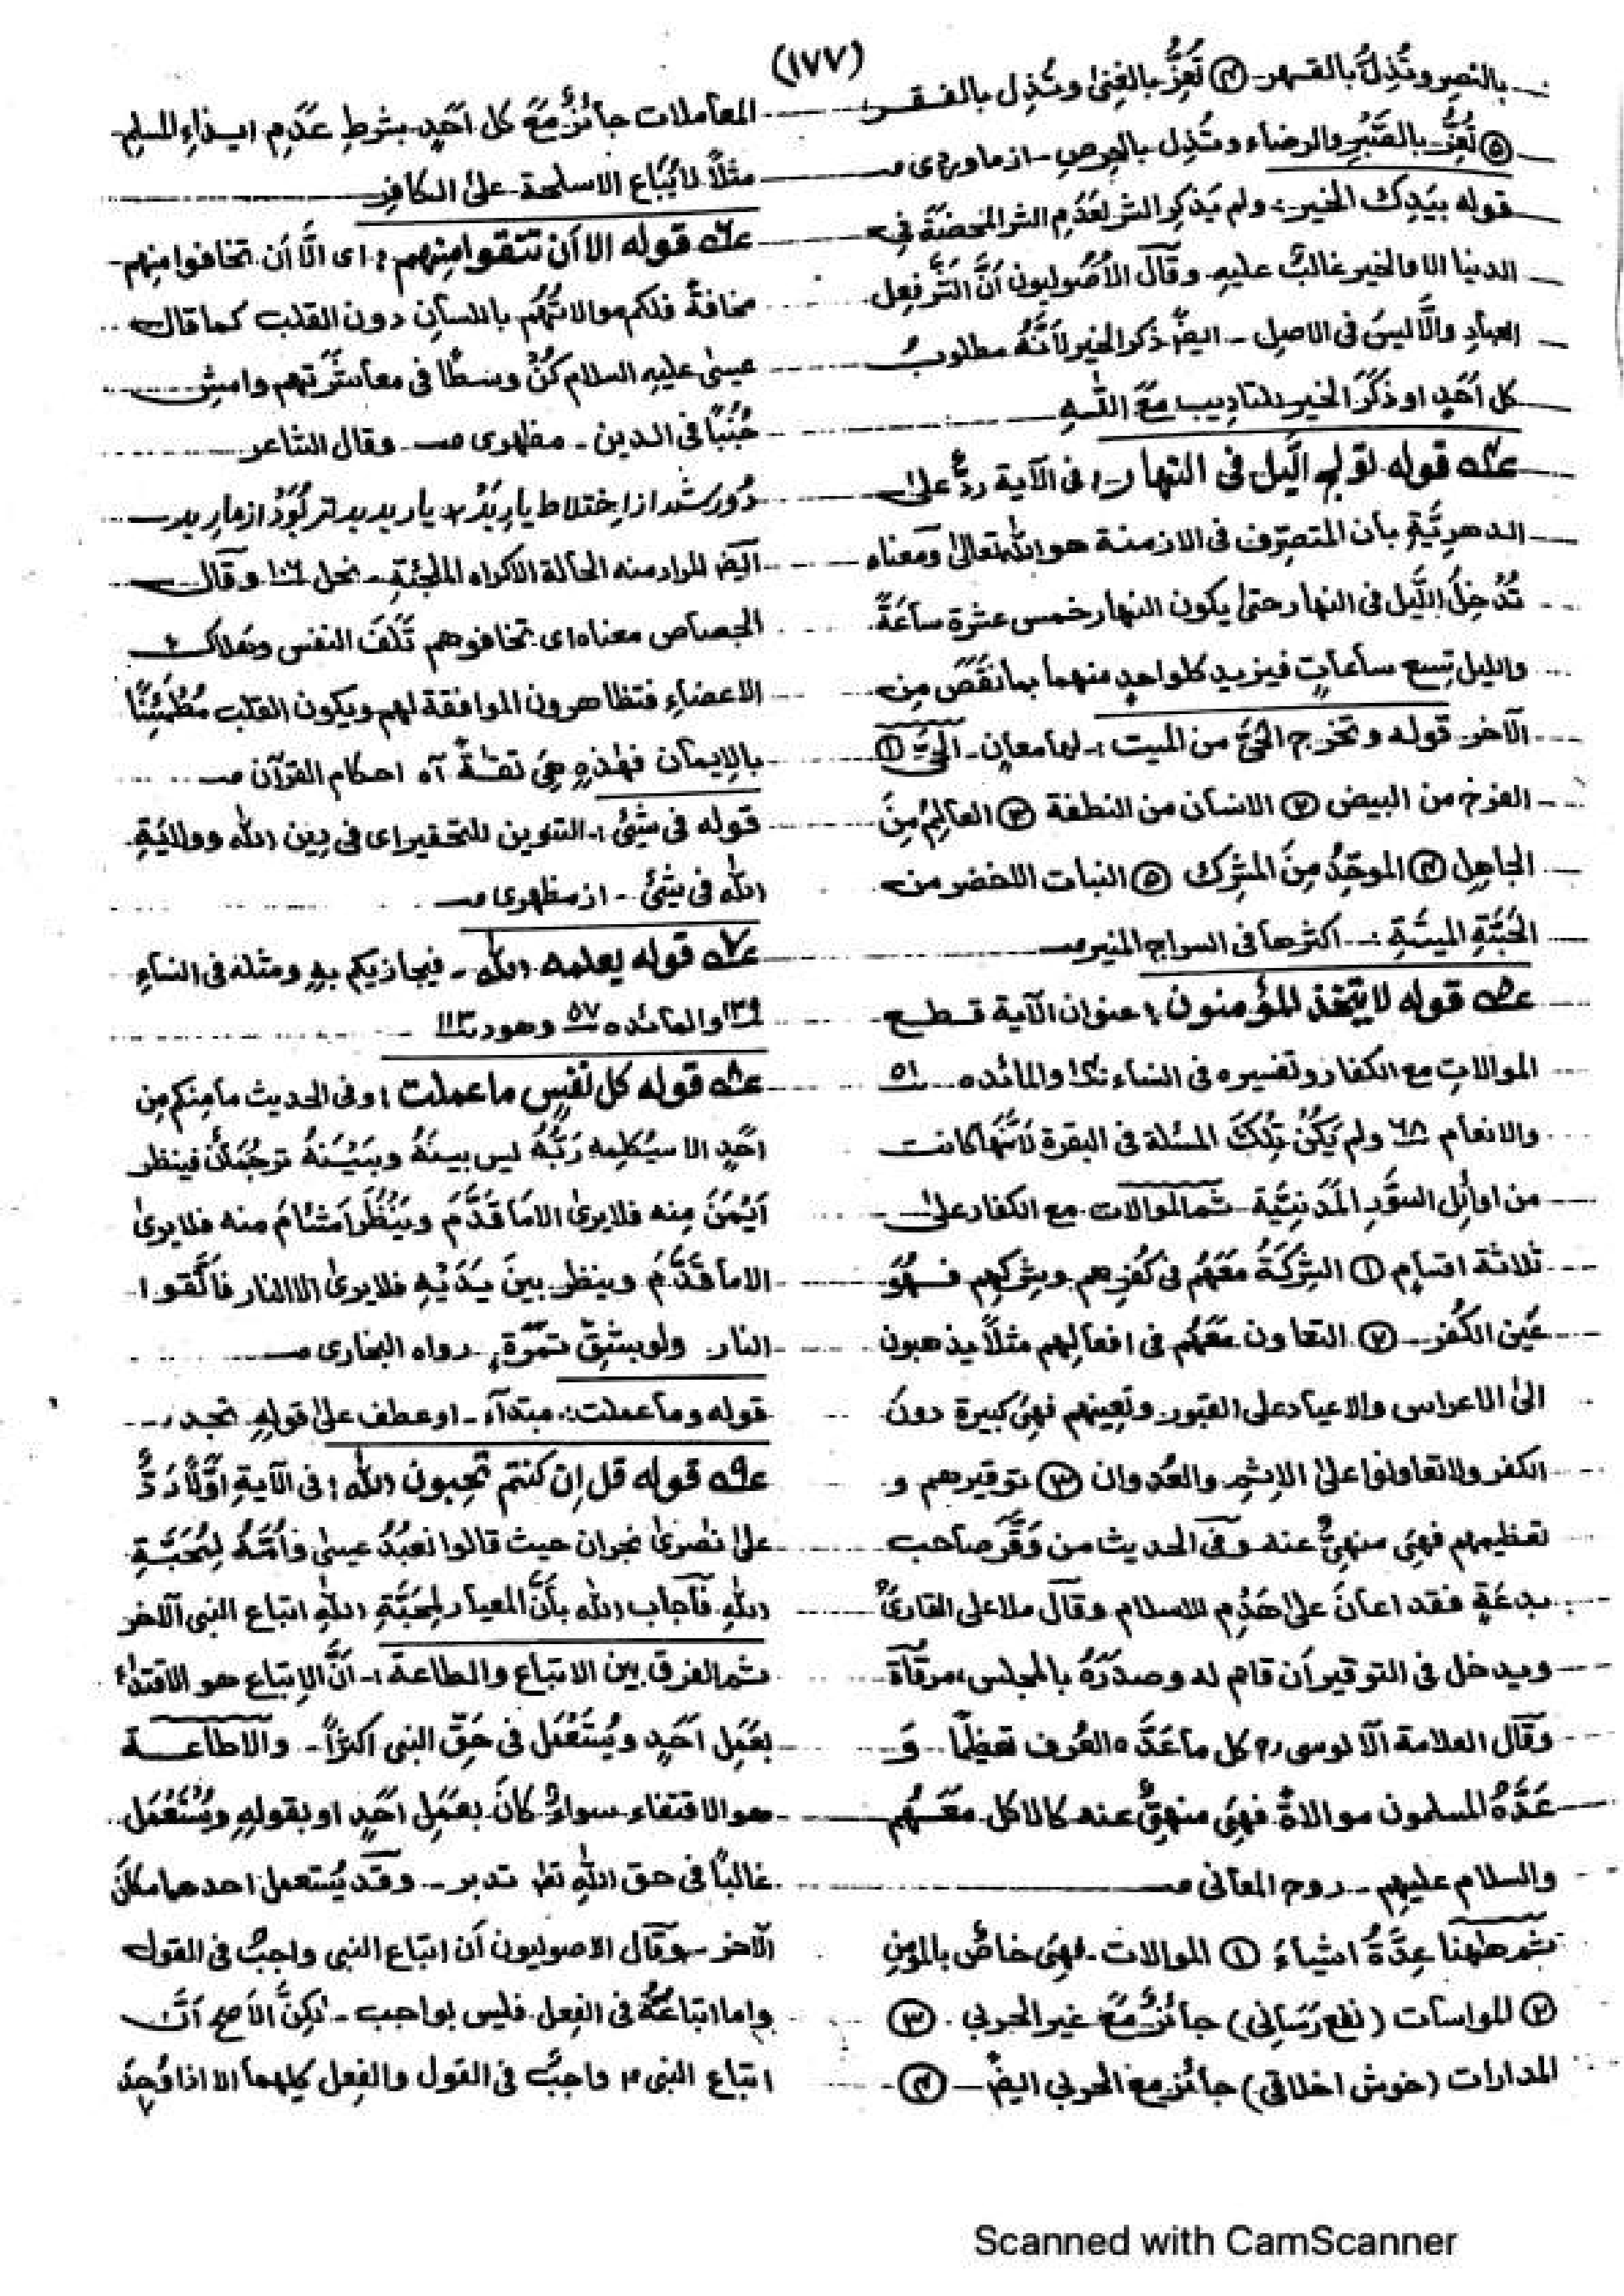 (١٧٧)
بالنصر وتُذِلُّ بالقهر۔ ④ تُعِزُّ بالغِنىٰ وتُذِل بالفقر
⑤ تُعِزُّ بالصَّبْرِ والرضاء وتُذِل بالحِرصِ۔ از ماوردی
قوله بيَدِك الخير: ولم يَذكِر الشر لعَدَمِ الشر المَحضَةَ فی
الدنيا الا والخير غالبٌ عليهِ۔ وقَالَ الأُصُوليون أنَّ الشَّرَ فِعل
العِبَادِ والَّا ليسَ فی الاصل ۔ ايضًا ذَكَر الخير لأنَّهُ مطلوبُ
كل أحَدٍ او ذَكَرَ الخير للتاديب مَعَ اللّٰهِ
قوله تولج الّيل فی النهار: فی الآية ردٌّ علیٰ
الدهرِيَّةِ بأن المتصرِّف فی الازمنة هو اللّٰه تعالیٰ ومَعناه
تُدْخِلُ الَّيل فی النهار حتیٰ يكون النهار خمس عشرة سَاعَةً
والليل تِسع سَاعَاتٍ فيزيد كلواحدٍ منهما بما نَقَصَ مِن
الآخر۔ قوله وتخرج الحَیَّ من الميت: لها معانٍ۔ الحَیَّ ①
الفرخ من البيض ② الانسان من النطفة ③ العالِمُ مِنَ
الجاهِلِ ④ الموحِّدُ مِنَ المشرك ⑤ النبات الاخضر من
الحَبَّةِ الميتَةِ: اكثرها فی السراج المنير
قوله لا يتخذ المؤمنون: عنوان الآية قطع
الموالاتِ مع الكفار وتفسيره فی النساء والمائده ٥١
والانعام ٦٨ ولم يَكُنْ تِلكَ المسئلة فی البقرة لأنَّهَا كانت
من اوائِل السُّوَرِ المَدَنِيَّة۔ ثم الموالات مع الكفار علیٰ
ثلاثة اقسام ① الشِركَةُ مَعَهُم فی كُفرِهم وشِركِهِم فَهُوَ
عَين الكُفر۔ ② التعاون مَعَهُم فی افعالِهم مثلاً يذهبون
الیٰ الاعراس والاعياد علی القبور۔ وتعِينهم فهِیَ كبيرة دونَ
الكفر ولا تعاونوا علیٰ الاِثمِ والعُدوان ③ توقيرهم و
تعظيمهم فهِیَ منهِیٌّ عنه وفی الحديث من وَقَّرَ صاحب
بدعَةٍ فقد اعانَ علیٰ هَدْمِ الاسلام وقَالَ ملا علی القاریٔ
ويدخل فی التوقير أن قام له وصدّرَهُ بالمجلس، مرقاة
وقَالَ العلامة الآلوسی كل ما عَدَّه العُرف تعظيمًا وَ
عَدَّهُ المسلمون موالاةً فهِیَ منهِیٌّ عنه كالاكل مَعَهُم
والسلام عليهِم۔ روح المعانی
ثم هٰهنا عِدَّةُ اشياءَ ① الموالات۔ فهِیَ خاصٌّ بالمومِنِ
② المواسات (نفع رَسانی) جائزٌ مَعَ غير الحربی ③
المدارات (خوش اخلاقی) جائز مع الحربی ايضًا۔ ④
المعاملات جائزٌ مَعَ كل احَدٍ بشرطِ عَدَمِ ايذاءِ المسلِم
مثلاً لا يُبَاع الاسلحة علیٰ الكافر
قوله الا أن تتقوا منهم: ای الَّا أن تخافوا منهم
مخافةً فلكم موالاتُهُم باللسان دون القلب كما قال
عيسیٰ عليه السلام كُنْ وسَطًا فی معاشَرَتِهم وامشِ
جُنُبًا فی الدين۔ مظهری۔ وقال الشاعر
دُور شد از اختلاط يارِ بَدْ، يار بد بدتر بُوَدْ از مارِ بد
ايضًا المراد منه الحالة الاكراه المُلجِئَةِ۔ نحل ١٠٦ وقَال
الجصاص معناه ای تخافوهم تَلَفَ النفس وهلاك
الاعضاءِ فتظاهرون الموافقة لهم ويكون القلب مُطْمَئِنًّا
بالايمان فهٰذِهٖ هِیَ تقٰةً آه احكام القرآن
قوله فی شیئٍ: التنوين للتحقير ای فی دِين اللّٰه وولايَةِ
اللّٰه فی شیئٍ۔ از مظهری
قوله يعلمه اللّٰه۔ فيجازيكم بهٖ ومثله فی النساءِ
١٤٩ والمائده ٥٧ وهود ١١٣
قوله كل نفسٍ ما عملت: وفی الحديث ما مِنكم مِن
احَدٍ الا سيُكلِمه رَبُّهُ ليس بينهُ وبَيْنَهُ ترجُمَانٌ فينظر
اَيْمَنَ مِنه فلا يریٰ الا مَا قَدَّمَ ويَنْظُرَ اَشْأَمَ منه فلا يریٰ
الا مَا قَدَّمَ وينظر بينَ يَدَيْهِ فلا يریٰ الا النار فاتَّقوا
النار ولو بشِقِّ تَمَرَةٍ، رواه البخاری
قوله وما عملت: مبتدآء۔ او عطف علیٰ قولهٖ تجد
قوله قل اِن كنتم تُحِبون اللّٰه: فی الآيةِ اوَّلاً رَدٌّ
علیٰ نصٰریٰ نجران حيث قالوا نَعبُدُ عيسیٰ وأُمَّهُ لِمُحَبَّةِ
اللّٰهِ۔ فَاَجاب اللّٰه بأَنَّ المعيار لِمَحَبَّةِ اللّٰهِ اتباع النبی الآخر
ثم الفرق بين الاتباع والطاعة: اَنَّ الاِتباع هو الاقتداء
بعَمَلِ احَدٍ ويُستَعمَل فی حَقِّ النبی اكثرًا۔ والاطاعة
هو الاقتفاء سواءٌ كانَ بعَمَلِ احَدٍ او بقولهٖ ويُسْتَعْمَل
غالبًا فی حق اللّٰهِ تعٰ تدبر۔ وقَد يُستعمل احدهما مكانَ
الآخر۔ وقَال الاصوليون أن اتباع النبی واجبٌ فی القول
واما اتباعُهُ فی الفِعل فليس بواجب۔ لكِنَّ الأصح أنَّ
اتباع النبی واجبٌ فی القول والفِعل كليهما الا اذا وُجِدَ
Scanned with CamScanner